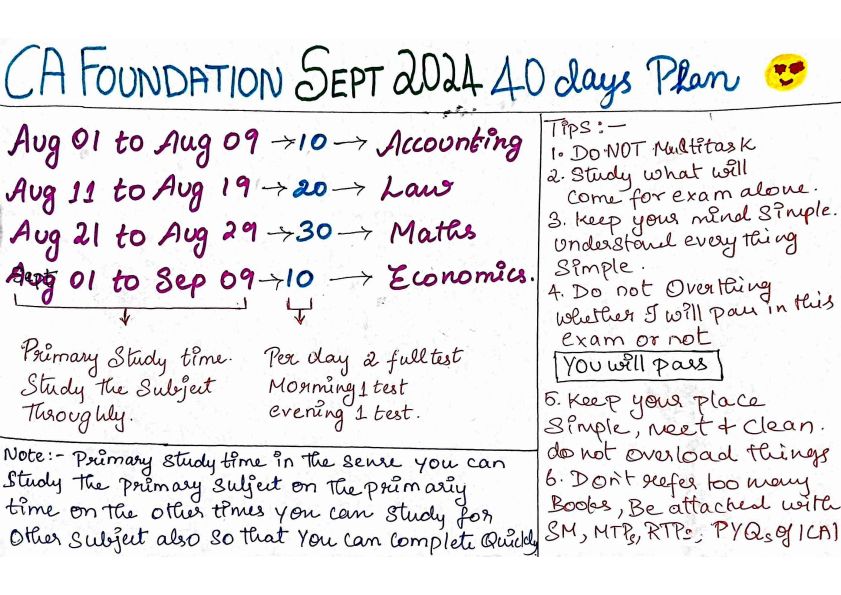 CA FOUNDATION SEPT 2024 40 days Plan
Aug 01 to Aug 09 → 10 → Accounting
Aug 11 to Aug 19 → 20 → Law
Aug 21 to Aug 29 → 30 → Maths
Sept 01 to Sep 09 → 10 → Economics.
Primary Study time.
Study the Subject
Throughly.
Per day 2 full test
Morning 1 test
evening 1 test.
Note:- Primary Study time in the sense you can
Study the primary Subject on the primariy
time on the other times you can Study for
Other Subject also so that you can complete Quickly
Tips:-
1. Do NOT Multitask
2. Study what will
come for exam alone.
3. Keep your mind Simple.
Understand every thing
Simple.
4. Do not Overthing
whether I will pass in this
exam or not
You will pass
5. Keep your place
Simple, neet & clean.
do not overload things
6. Don't refer too many
Books, Be attached with
SM, MTPs, RTPs, PYQs of ICAI